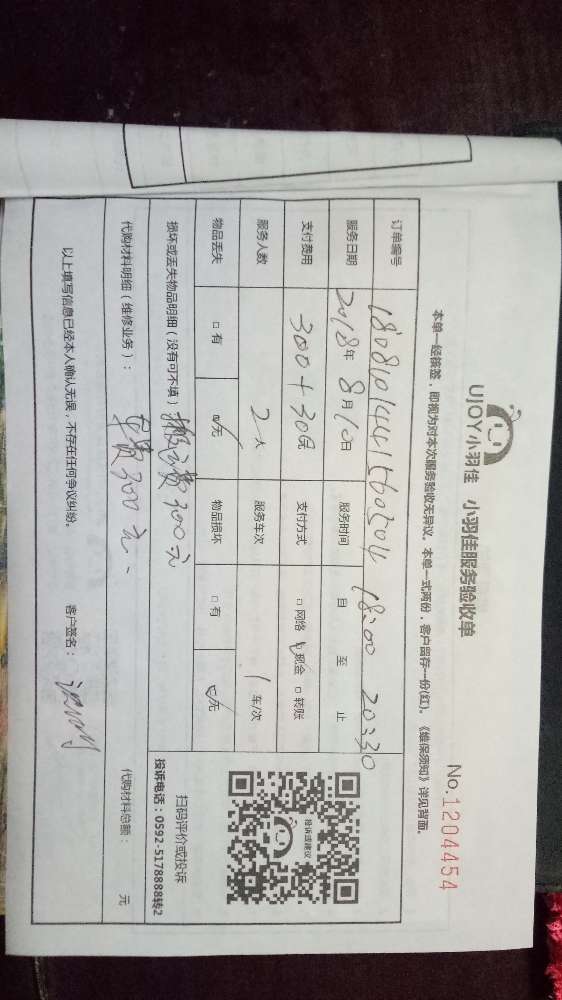 UJOY小羽佳 小羽佳服务验收单
No.1204454
本单一经核签，即视为对本次服务验收无异议。本单一式两份，客户留存一份(红)。《维保须知》详见背面。
订单编号 1808101441560504
服务日期 2018年8月10日 服务时间 18:00 自 至 止 20:30
支付费用 300+30元 支付方式 □网络 ☑现金 □转账
服务人数 2人 服务车次 1车/次
物品丢失 □有 ☑无 物品损坏 □有 ☑无
投诉或建议
扫码评价或投诉
投诉电话：0592-5178888转2
损坏或丢失物品明细（没有可不填） 搬运费300元
代购材料明细（维修业务）： 车费300元、 代购材料总额： 元
以上填写信息已经本人确认无误，不存在任何争议纠纷。 客户签名：